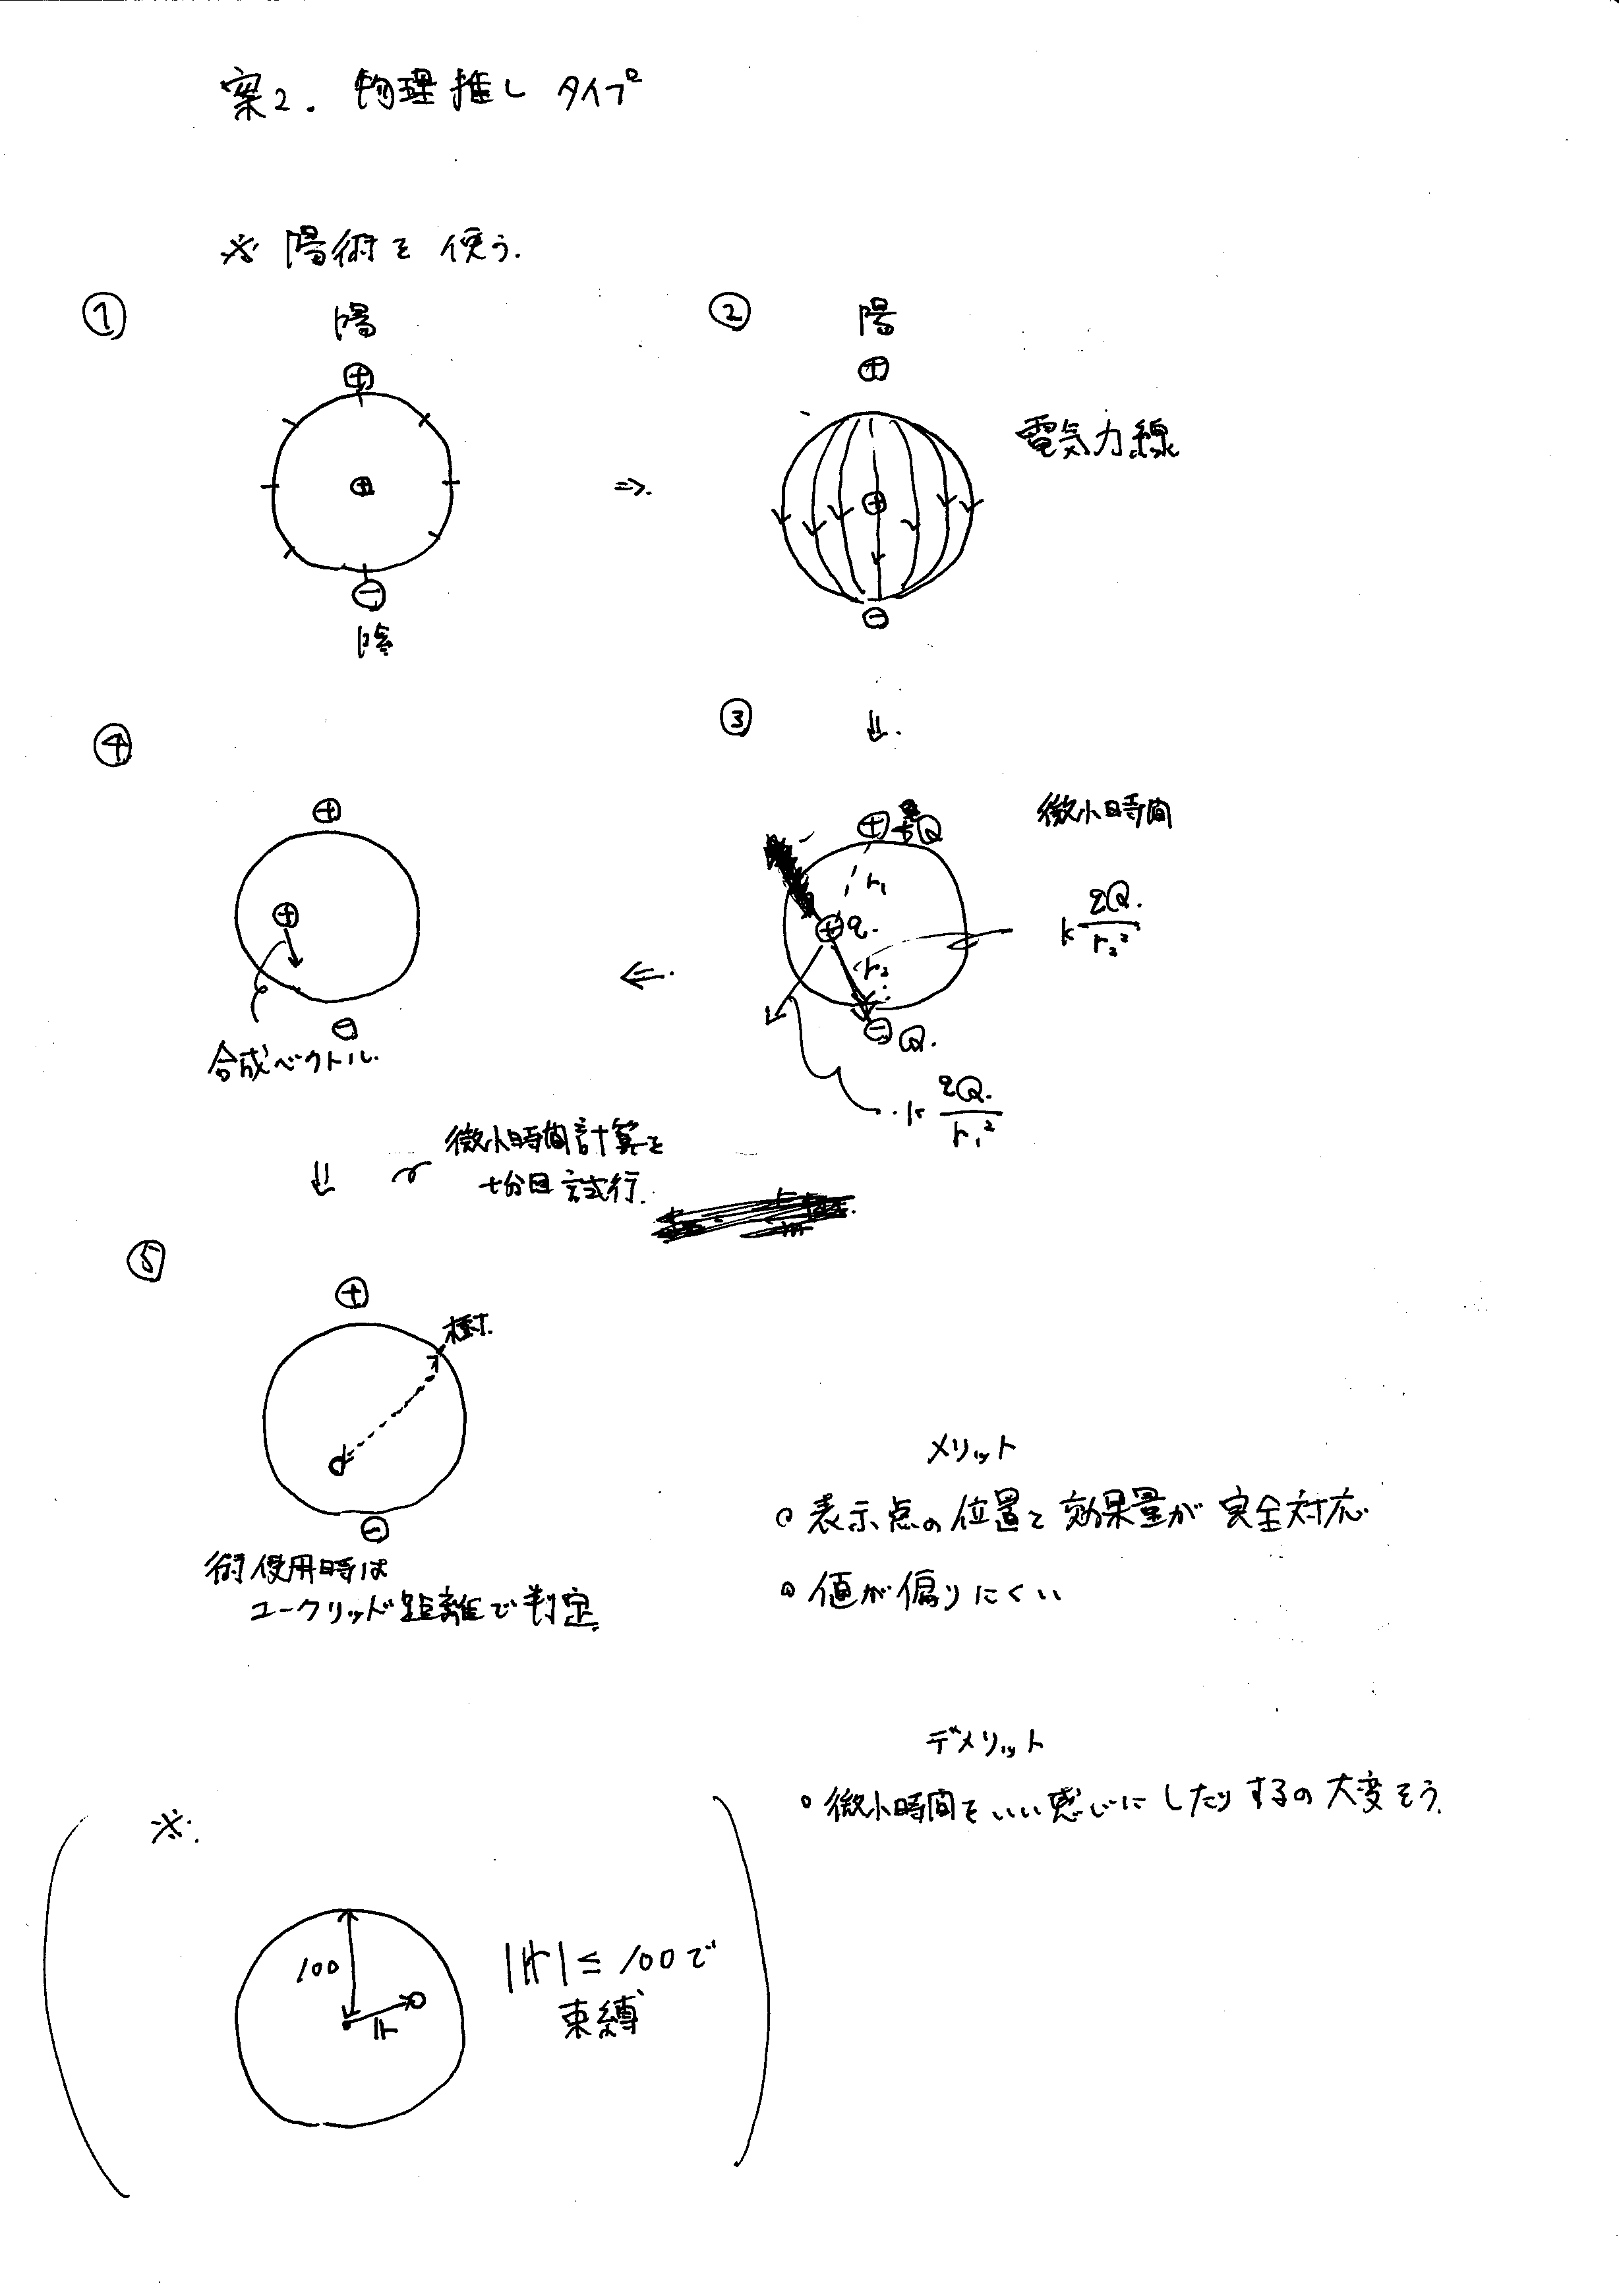 案2. 物理推しタイプ
※ 陽術を使う.
①
陽
⊕
⊕
⊖
陰
⇒
②
陽
⊕
電気力線
⊕
⊖
⇓
③
微小時間
⊕ Q
r₁
⊕ q.
r₂
⊖ Q.
k qQ. / r₂²
k qQ. / r₁²
⇐
④
⊕
⊕
⊖
合成ベクトル.
⇓
微小時間計算を
十分回試行.
⑤
⊕
樹.
⊖
術使用時は
ユークリッド距離で判定.
メリット
○ 表示点の位置と効果量が完全対応
○ 値が偏りにくい
デメリット
○ 微小時間をいい感じにしたりするの大変そう.
※.
100
r
|r| ≤ 100で
束縛